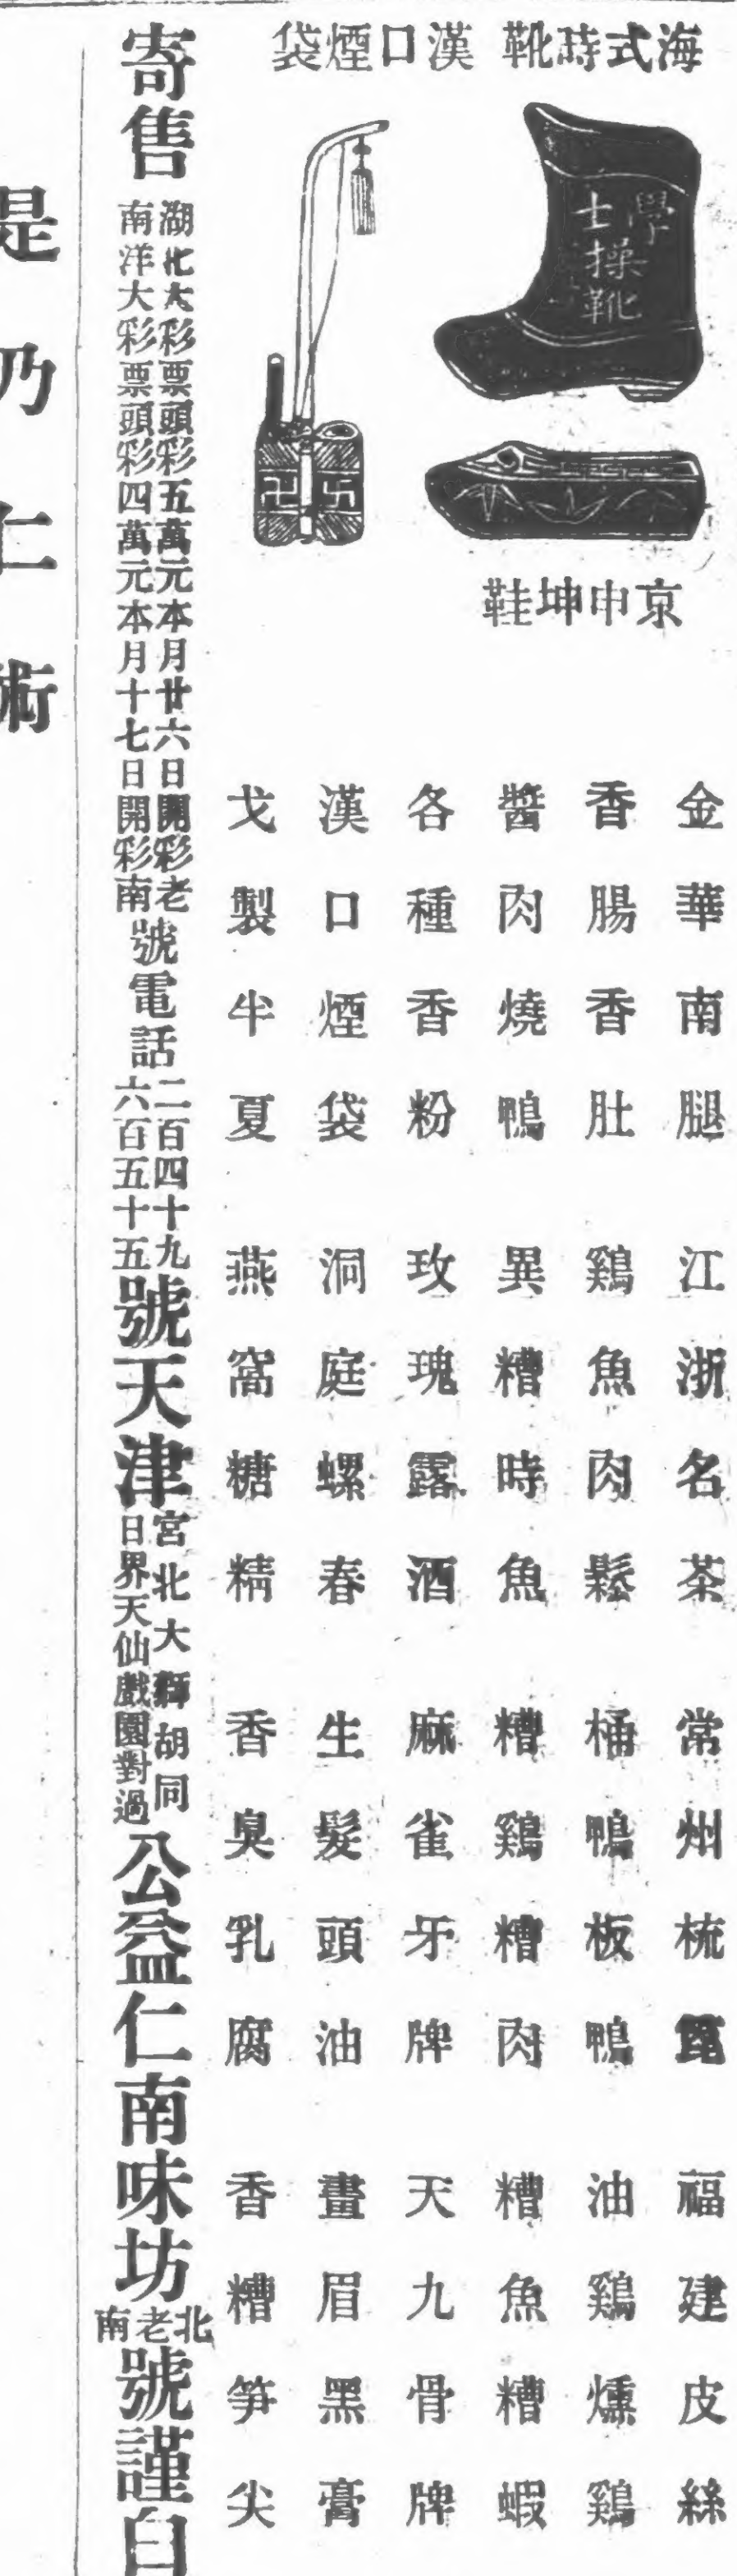 海式蒔靴 漢口煙袋
學士操靴
京申坤鞋
金華南腿 江浙名茶 常州梳篦 福建皮絲
香腸香肚 鷄魚肉鬆 桶鴨板鴨 油鷄燻鷄
醬肉燒鴨 異糟時魚 糟鷄糟肉 糟魚糟蝦
各種香粉 玫瑰露酒 麻雀牙牌 天九骨牌
漢口煙袋 洞庭螺春 生髮頭油 畫眉黑膏
戈製半夏 燕窩糖精 香臭乳腐 香糟笋尖
寄售
湖北大彩票頭彩五萬元本月廿六日開彩老
南洋大彩票頭彩四萬元本月十七日開彩南
號電話
二百四十九
六百五十五
號天津
宮北大獅胡同
日界天仙戲園對過
公益仁南味坊
北老南
號謹白
是乃仁術